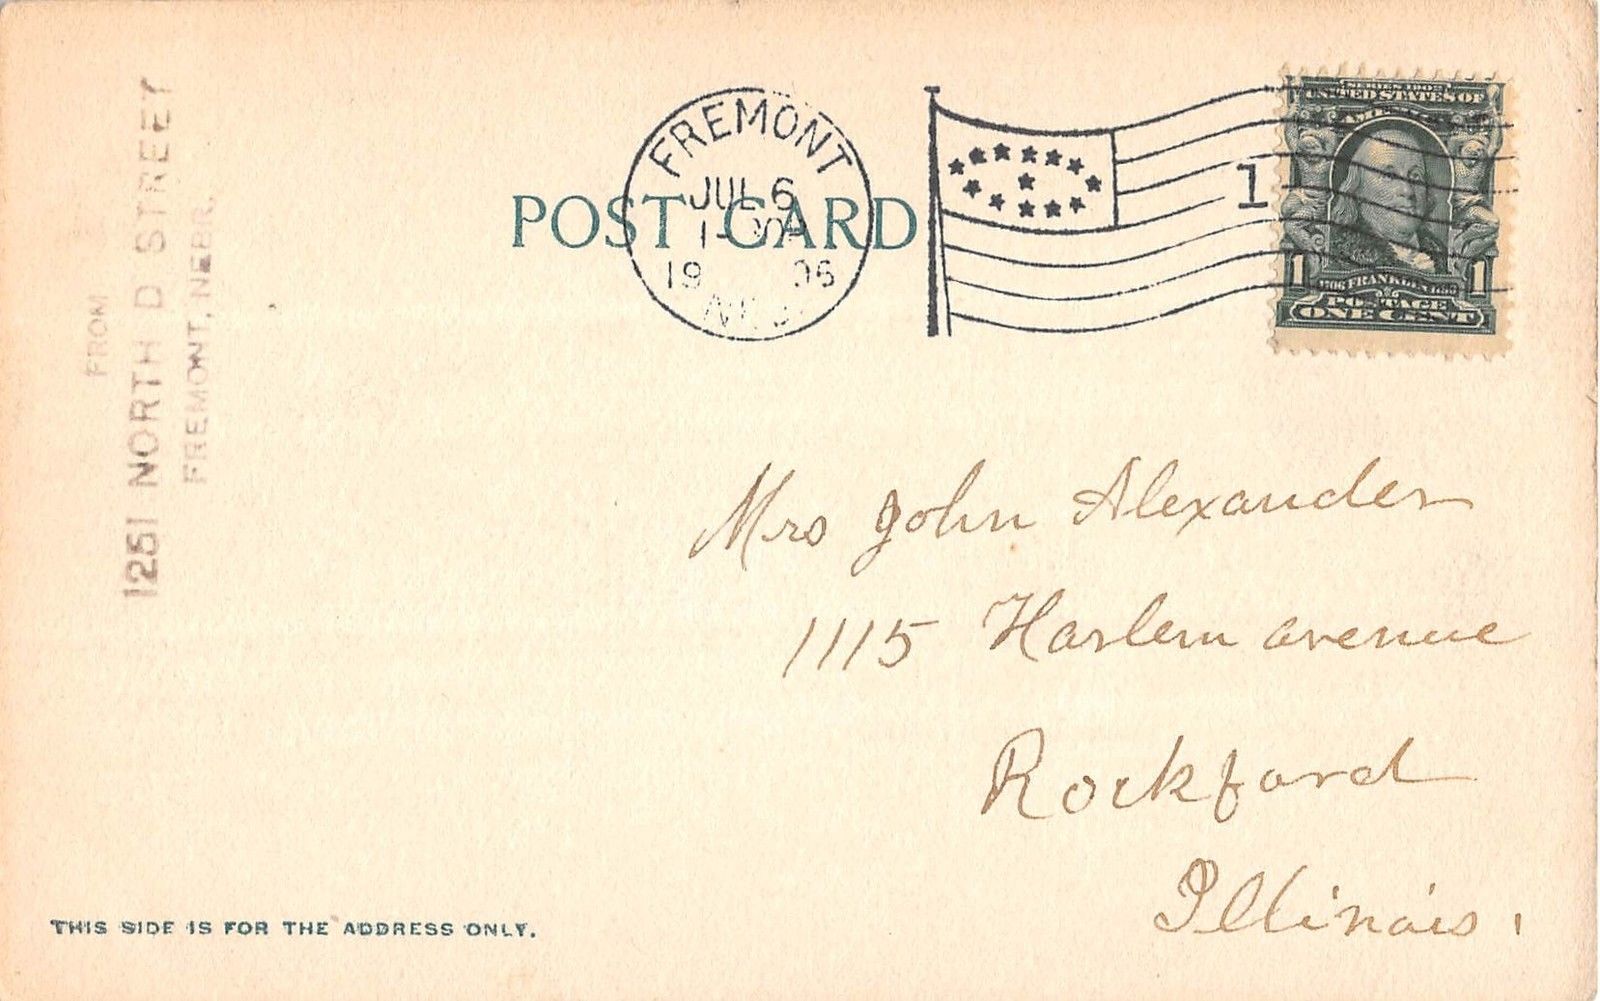 FROM
1251 NORTH D STREET
FREMONT, NEBR.
POST CARD
FREMONT
JUL 6
1906
1
SERIES 1902
UNITED STATES OF
AMERICA
1 FRANKLIN 1
POSTAGE
ONE CENT
Mrs John Alexander
1115 Harlem avenue
Rockford
Illinois.
THIS SIDE IS FOR THE ADDRESS ONLY.